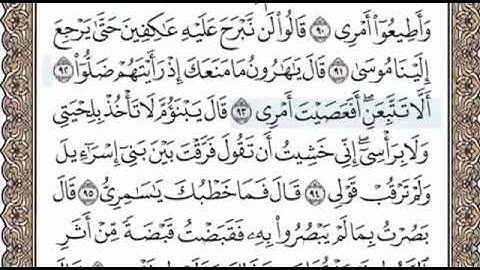 وَأَطِيعُوٓا۟ أَمْرِى ٩٠ قَالُوا۟ لَن نَّبْرَحَ عَلَيْهِ عَـٰكِفِينَ حَتَّىٰ يَرْجِعَ
إِلَيْنَا مُوسَىٰ ٩١ قَالَ يَـٰهَـٰرُونُ مَا مَنَعَكَ إِذْ رَأَيْتَهُمْ ضَلُّوٓا۟ ٩٢
أَلَّا تَتَّبِعَنِ ۖ أَفَعَصَيْتَ أَمْرِى ٩٣ قَالَ يَبْنَؤُمَّ لَا تَأْخُذْ بِلِحْيَتِى
وَلَا بِرَأْسِىٓ ۖ إِنِّى خَشِيتُ أَن تَقُولَ فَرَّقْتَ بَيْنَ بَنِىٓ إِسْرَٰٓءِيلَ
وَلَمْ تَرْقُبْ قَوْلِى ٩٤ قَالَ فَمَا خَطْبُكَ يَـٰسَـٰمِرِىُّ ٩٥ قَالَ
بَصُرْتُ بِمَا لَمْ يَبْصُرُوا۟ بِهِۦ فَقَبَضْتُ قَبْضَةً مِّنْ أَثَرِ